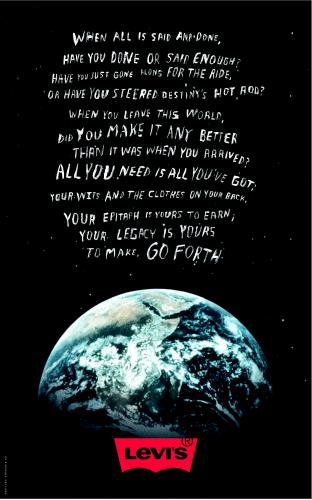 WHEN ALL IS SAID AND DONE,
HAVE YOU DONE OR SAID ENOUGH?
HAVE YOU JUST GONE ALONG FOR THE RIDE,
OR HAVE YOU STEERED DESTINY'S HOT ROD?
WHEN YOU LEAVE THIS WORLD,
DID YOU MAKE IT ANY BETTER
THAN IT WAS WHEN YOU ARRIVED?
ALL YOU NEED IS ALL YOU'VE GOT;
YOUR WITS AND THE CLOTHES ON YOUR BACK.
YOUR EPITAPH IS YOURS TO EARN;
YOUR LEGACY IS YOURS
TO MAKE. GO FORTH.
LEVI'S®